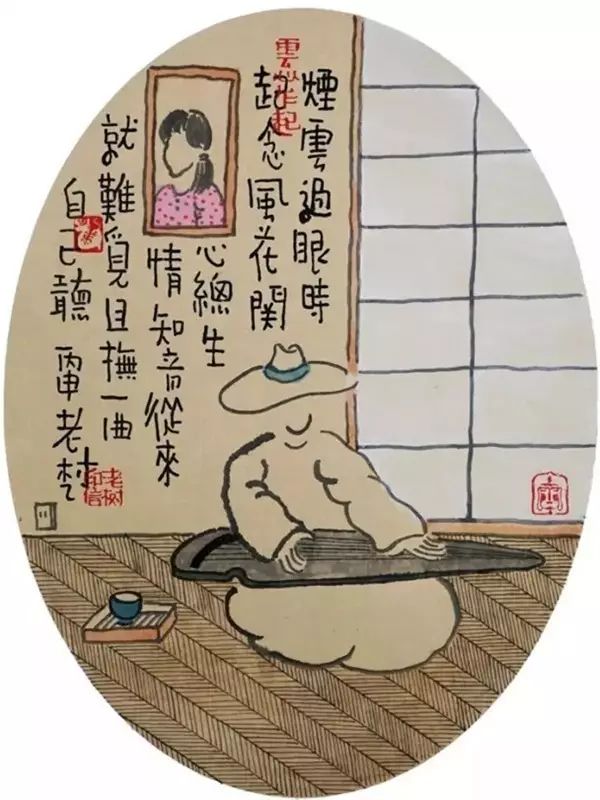 煙雲過眼時
起念風花関
心總生
情知音從來
就難覓且撫一曲
自己聽 丙申老树
老树
印信